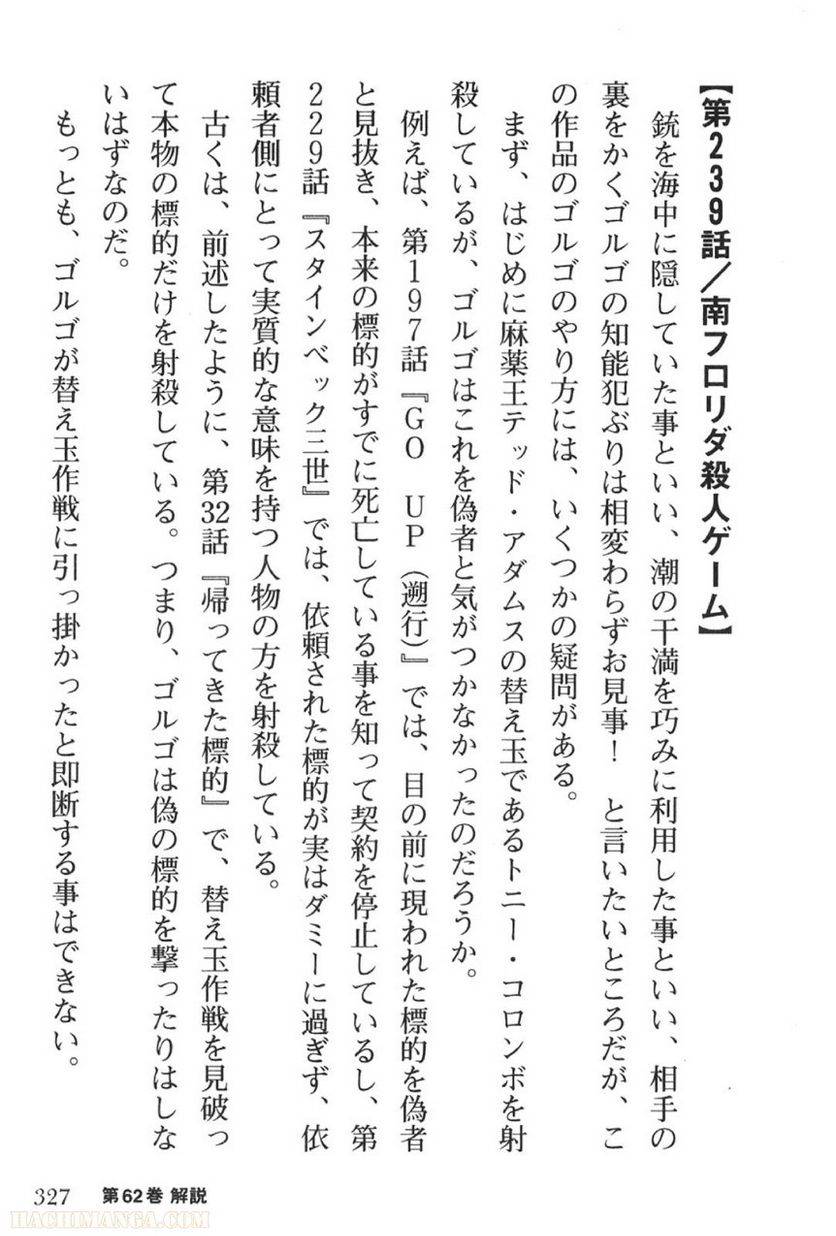 【第239話／南フロリダ殺人ゲーム】
銃を海中に隠していた事といい、潮の干満を巧みに利用した事といい、相手の
裏をかくゴルゴの知能犯ぶりは相変わらずお見事！　と言いたいところだが、こ
の作品のゴルゴのやり方には、いくつかの疑問がある。
まず、はじめに麻薬王テッド・アダムスの替え玉であるトニー・コロンボを射
殺しているが、ゴルゴはこれを偽者と気がつかなかったのだろうか。
例えば、第197話『GO　UP（遡行）』では、目の前に現われた標的を偽者
と見抜き、本来の標的がすでに死亡している事を知って契約を停止しているし、第
229話『スタインベック三世』では、依頼された標的が実はダミーに過ぎず、依
頼者側にとって実質的な意味を持つ人物の方を射殺している。
古くは、前述したように、第32話『帰ってきた標的』で、替え玉作戦を見破っ
て本物の標的だけを射殺している。つまり、ゴルゴは偽の標的を撃ったりはしな
いはずなのだ。
もっとも、ゴルゴが替え玉作戦に引っ掛かったと即断する事はできない。
327 第62巻 解説
HACHIMANGA.COM